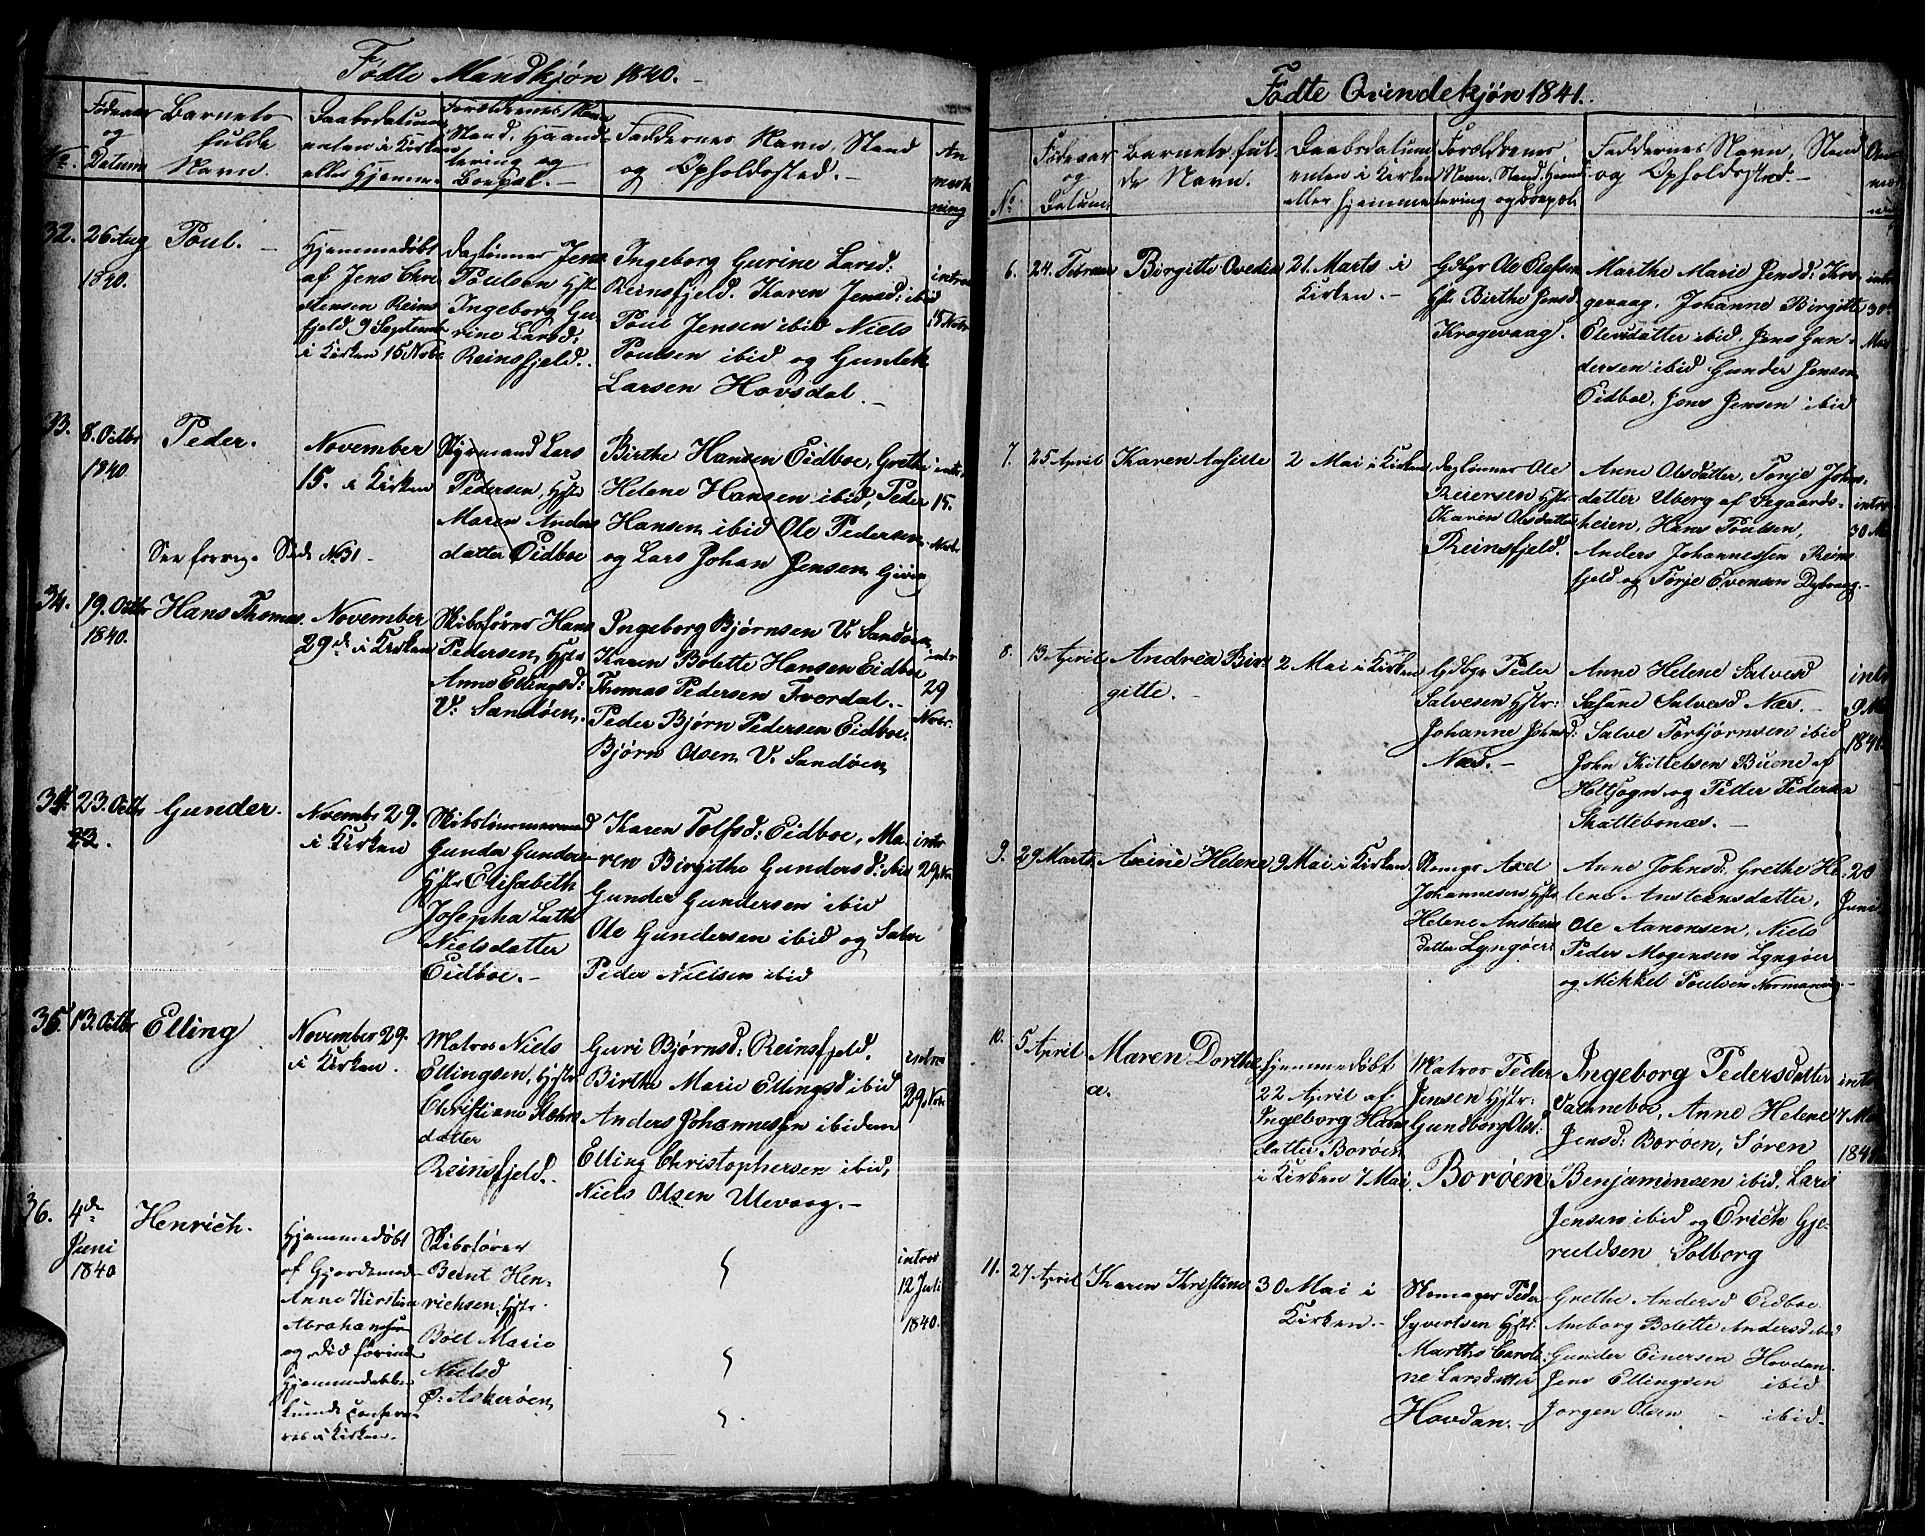 Fødte Mandkjøn 1840.
No.
Fødselsaar
og
Datum
Barnets
fulde
Navn.
Daabsdatum
enten i Kirken
eller Hjemme
Forældrenes Navn
Stand, Haand-
tering og
Boepæl.
Faddernes Navn, Stand
og Opholdssted.
An
mærk
ning
32.
26 Aug
1840.
Poul.
Hjemmedøbt
af Jens Chri-
stensen Reins
fjeld 9 Septemb
i Kirken 15 Nobr
Daglønner Jens
Poulsen Hstr
Ingeborg Gu-
rine Larsd:
Reinsfjeld.
Ingeborg Gurine Larsd:
Reinsfjeld. Karen Jensd: ibid
Poul Jensen ibid Niels
Poulsen ibid og Gunlek
Larsen Hovsdal.
introd
15 Nobr
33.
8. Octbr
1840
Peder.
November
15. i Kirken
Styrmand Lars
Pedersen, Hstr
Maren Anders
datter Eidboe
Birthe Hansen Eidboe, Grethe
Helene Hansen ibid, Peder
Hansen ibid Ole Pedersen
og Lars Johan Jensen Gjeving
intr
15.
Nobr
See forrige Side No 31
34.
19. Octbr
1840.
Hans Thomas.
November
29de i Kirken
Skibsfører Hans
Pedersen, Hstr
Anne Ellingsd:
V: Sandøen.
Ingeborg Bjørnsen V: Sandøen
Karen Bolette Hansen Eidboe
Thomas Pedersen Fverdal.
Peder Bjørn Pedersen Eidboe.
Bjørn Olsen V: Sandøen
intr
29
Nobr.
34.
23. Octbr
Gunder.
Novembr 29.
i Kirken
Skibstømmermand
Gunder Gunders
Hstr Elisabeth
Josepha Lath
Nielsdatter
Eidboe.
Karen Tolfsd: Eidboe, Ma-
ren Birgithe Gundersd: ibid
Gunder Gundersen ibid
Ole Gundersen ibid og Salve
Peder Nielsen ibid
intr
29 Nobr
35.
13. Octbr
Elling
November 29.
i Kirken.
Matros Niels
Ellingsen, Hstr
Christiane Steens
datter
Reinsfjeld.
Guri Bjørnsd: Reinsfjeld,
Birthe Marie Ellingsd ibid
Anders Johannesen ibidem
Elling Christophersen ibid,
Niels Olsen Ulevaag.
introd
29 Nobr
36.
4de
Juni
1840
Henrich.
Hjemmedøbt
af Gjordemod
Anne Kirstina
Abrahamsen
og død førend
Hjemmedaaben
kunde confere-
res i Kirken.
Skibsfører
Beint Hen-
richsen, Hstr
Boel Marie
Nielsd
Ø: Askerøen,
introd
12 Juli
1840.
Fødte Qvindekjøn 1841.
No
Fødselsaar
og
Datum.
Barnets ful-
de Navn.
Daabsdatum
enten i Kirken
eller hjemme
Forældrenes
Navn, Stand, Haand-
tering og Boepæl
Faddernes Navn, Stand
og Opholdssted.
6.
24. Februar
Birgitte Ovedia
21. Marts i
Kirken.
Gdbgr Ole Olafsen
Hstr Birthe Jensd
Krogevaag.
Marthe Marie Jensd: Kro-
gevaag, Johanne Birgitte
Olensdatter ibid. Jens Gun-
dersen ibid Gunder Jensen
Eidboe, Jens Jensen ibid
intr
30
Mai
7.
25 April
Karen Aasille
2 Mai i Kirken
Dagløner Ole
Reiersen Hstr
Karen Olsdatter
Reinsfjeld.
Anne Olsdatter, Torje Johns-
datter Uberg af Vegaards-
heien, Hans Poulsen,
Anders Johannessen Reins
fjeld og Torje Evensen Dybvaag.
introd
30 Mai
8.
13 April
Andrea Bir-
gitte.
2 Mai i Kirken
Gdbgr Peder
Salvesen Hstr:
Johanne Johnsd:
Næs.
Anne Helene Salvesd
Sasane Salvesd Næs.
Salve Torbjørnsen ibid
John Kittelsen Buene af
Holtsogn og Peder Pedersen
Skattebonæs.
intr
9. Mai
1841.
9.
29 Marts
Axine Helene
9 Mai i Kirken
Skomgr Axel
Johannesen Hstr
Helene Anstens
datter Lyngøer
Anne Johnsd: Grethe He-
lene Ansteensdatter,
Ole Aanonsen, Niels
Peder Mogensen Lyngøer
og Mikkel Poulsen Normanvig.
20
Juni
10.
5 April
Maren Dorthe
a.
Hjemmedøbt
22 April af
Ingeborg Hans
datter Borøen
i Kirken 7 Mai
Matros Peder
Jensen Hstr:
Gundborg Olsd:
Borøen
Ingeborg Pedersdatter
Sanneboe, Anne Helene
Jensd: Borøen, Søren
Benjaminsen ibid. Lars
Jensen ibid og Erich Gje-
ruldsen Solborg
intr
7 Mai
1841
11.
27 April
Karen Kristine
30 Mai i
Kirken.
Skomager Peder
Syvertsen Hstr:
Marthe Caroli
ne Larsdatter
Hovdan.
Grethe Andersd Eidboe
Anborg Bolette Andersd ibid
Gunder Einersen Hovdan
Jens Ellingsen ibid
Jorgen Olsen ibid